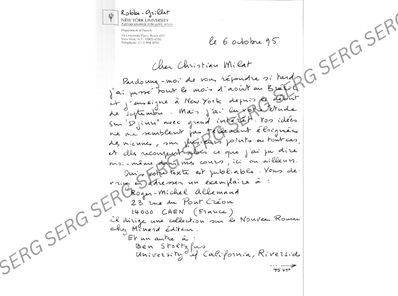 Robbe-Grillet
NEW YORK UNIVERSITY
A private university in the public service
Department of French
le 6 octobre 95
Cher Christian Milat
Pardonnez-moi de vous répondre si tard,
j'ai passé tout le mois d'août au Brésil
et j'enseigne à New York depuis le début
de septembre. Mais j'ai lu votre étude
sur "Djinn" avec grand intérêt. Vos idées
ne me semblent pas tellement éloignées
des miennes, sur plusieurs points en tout cas,
et elles recoupent bien ce que j'ai pu dire
moi-même dans mes cours, ici ou ailleurs.
Oui, votre texte est publiable. Vous de-
vriez en adresser un exemplaire à :
Roger-Michel Allemand
23 rue du Pont Créon
14000 CAEN (France)
il dirige une collection sur le Nouveau Roman
chez Minard éditeur.
Et un autre à :
Ben Stoltzfus
University of California, Riverside
TSVP
SERG SERG SERG SERG SERG SERG SERG SERG